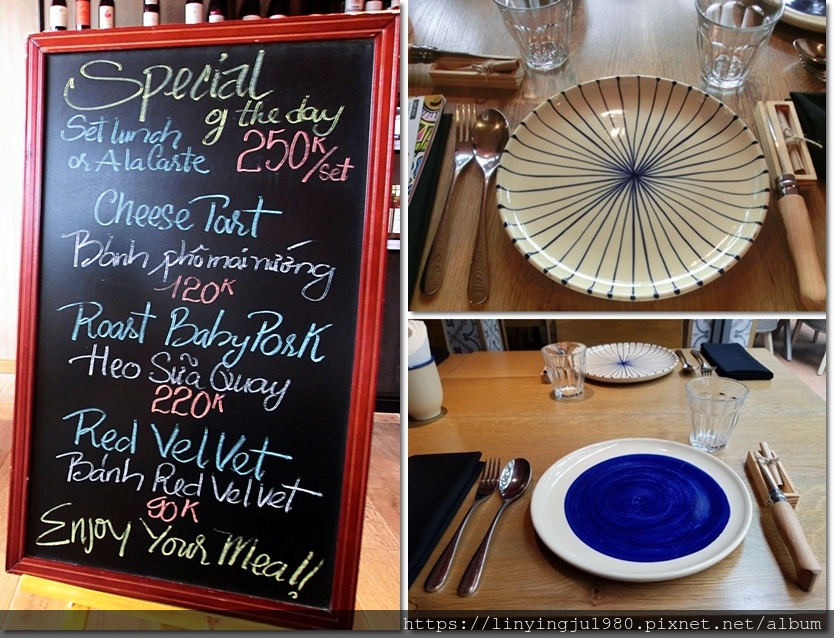 Special
of the day
Set lunch
or A la Carte
250K/set
Cheese Tart
Bánh phô mai nướng
120K
Roast Baby Pork
Heo Sữa Quay
220K
Red Velvet
Bánh Red Velvet
90K
Enjoy Your Meal!
https://linyingju1980.pixnet.net/album